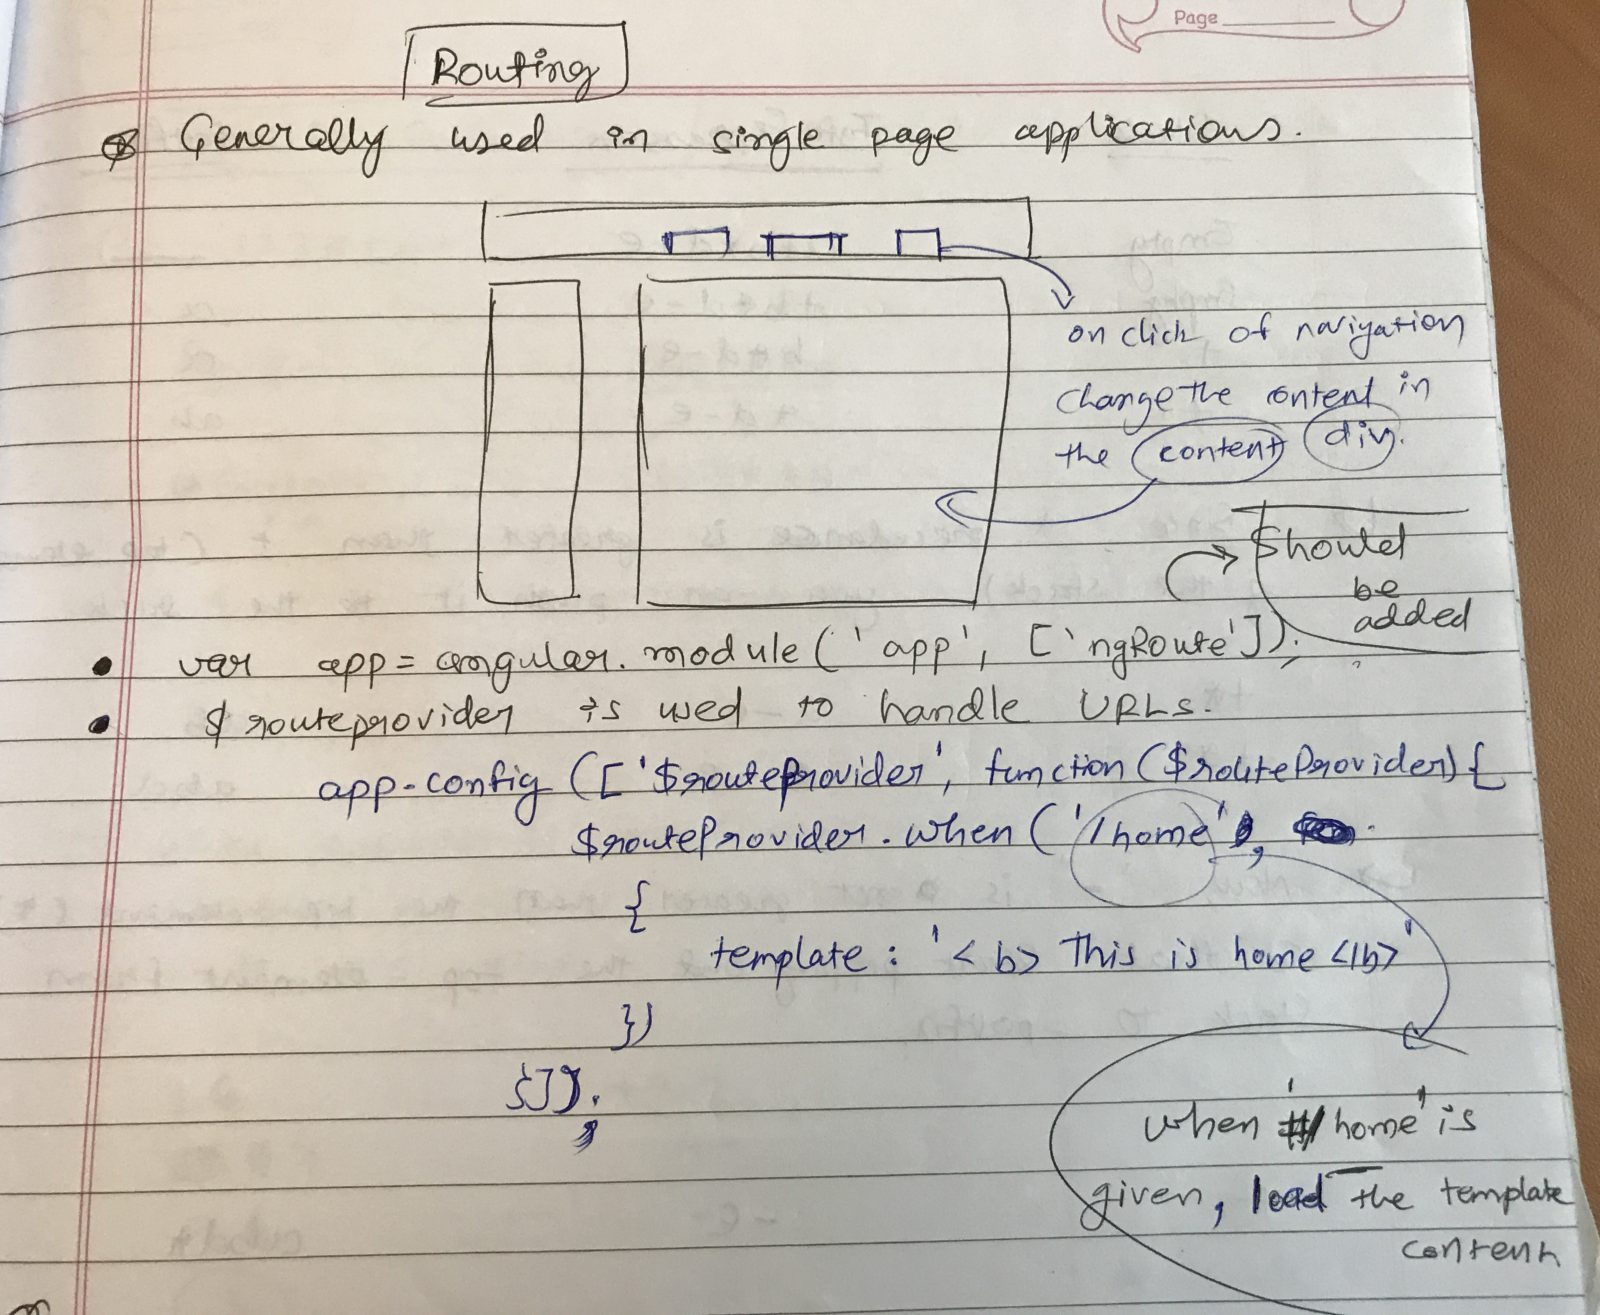 Page
Routing
Generally used in single page applications.
on click of navigation
change the content in
the content div.
Should
be
added
var app = angular.module('app', ['ngRoute']);
$routeprovider is used to handle URLs.
app.config(['$routeProvider', function($routeProvider){
$routeProvider.when('/home',
{
template: '<b> This is home </b>'
})
}]);
when '#/home' is
given, load the template
content